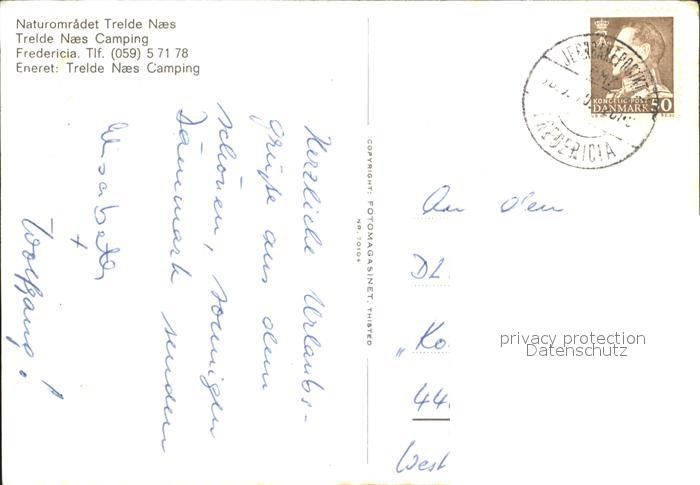 Naturområdet Trelde Næs
Trelde Næs Camping
Fredericia. Tlf. (059) 5 71 78
Eneret: Trelde Næs Camping
Herzliche Urlaubs-
grüße aus dem
schönen, sonnigen
Dänemark senden
Elisabeth
+
Wolfgang!
COPYRIGHT: FOTOMAGASINET, THISTED
NR. 70104
KONGELIG POST
DANMARK 50
FREDERICIA
An den
DL
„Ko
44
West
privacy protection
Datenschutz